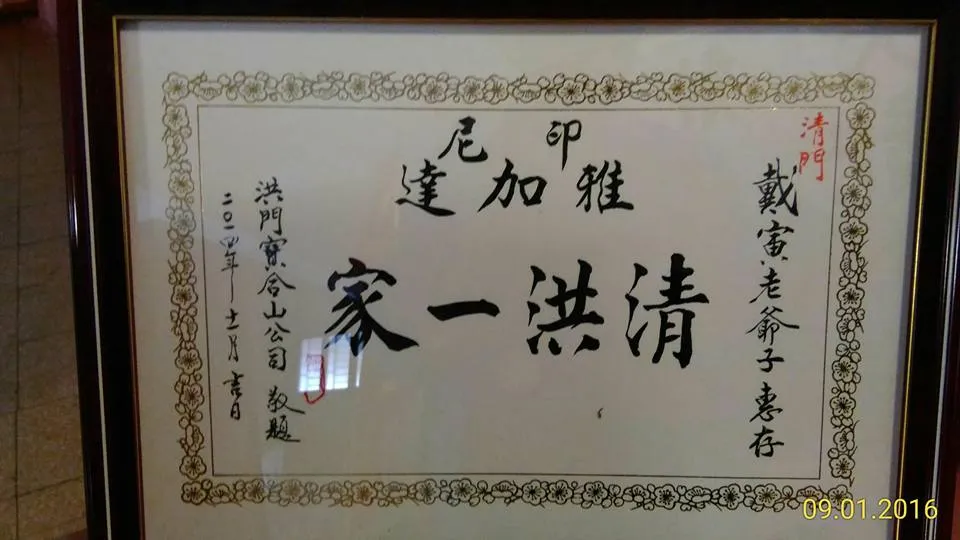 清門
戴寅老爺子惠存
印尼
雅加達
清洪一家
洪門寶合山公司 敬題
二〇一四年十一月吉日
09.01.2016